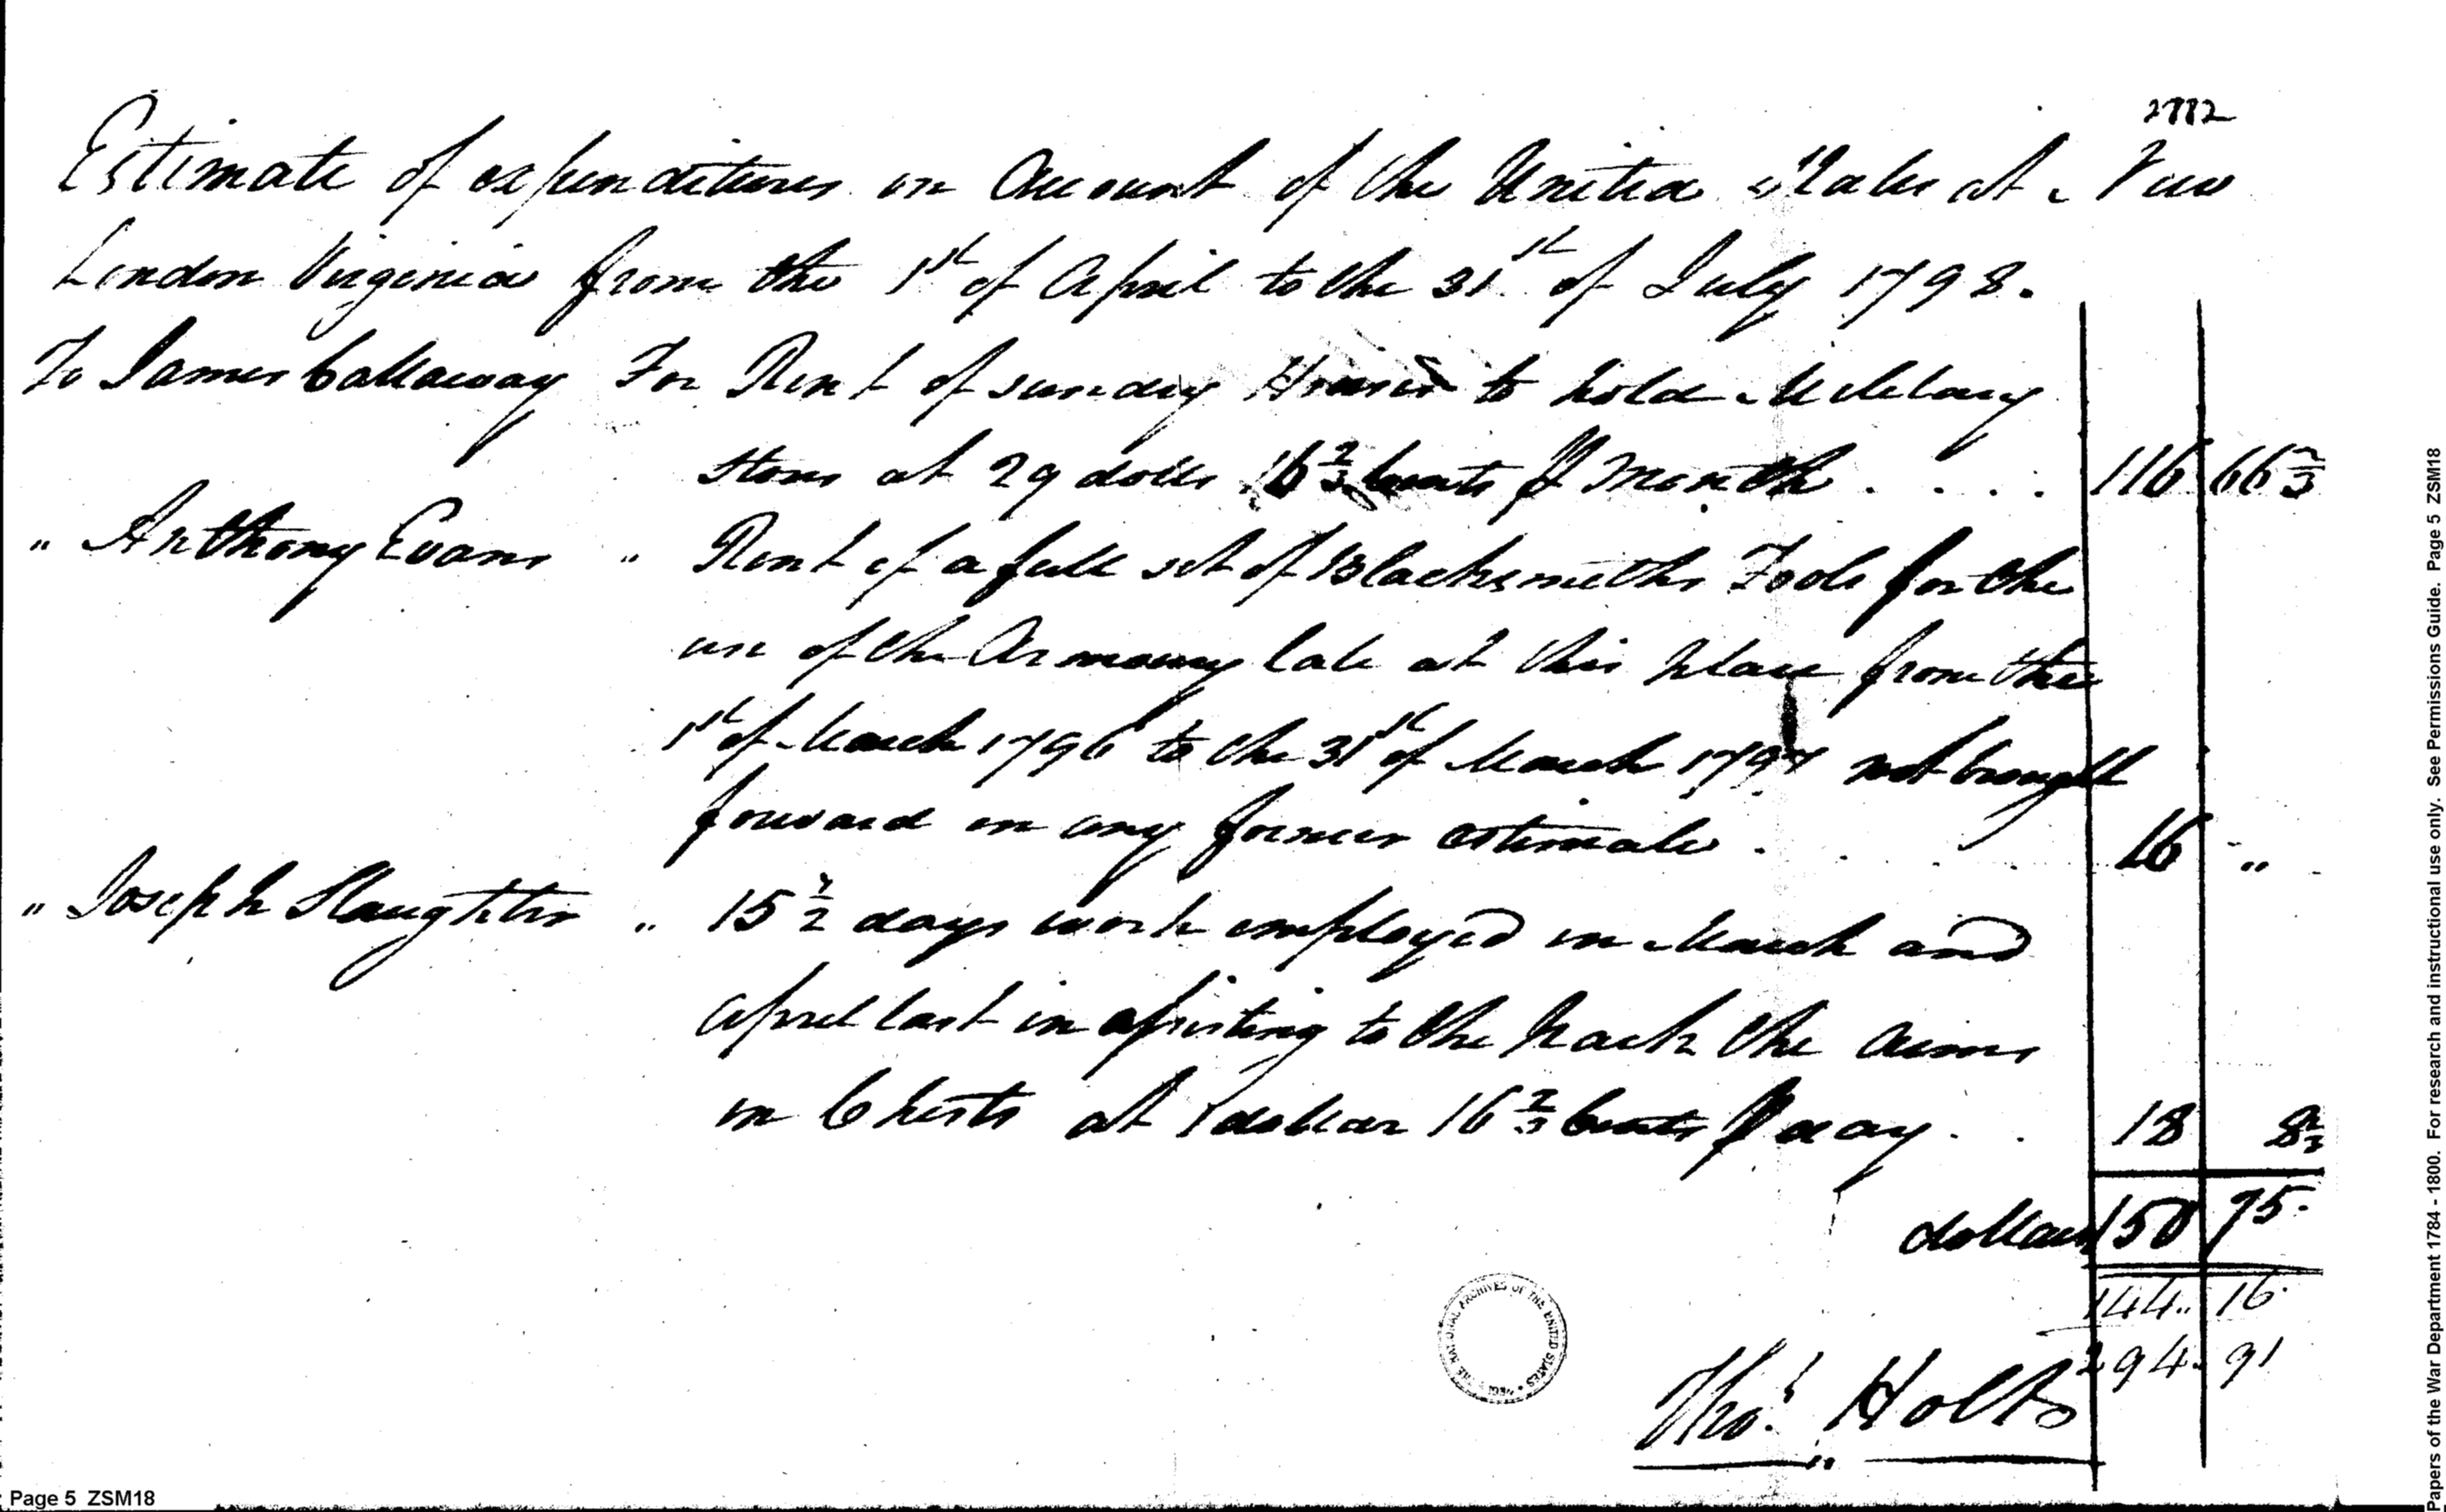 2882
Estimate of expenditures on Account of the United States at New
London Virginia from the 1st of April to the 31st of July 1798.
To James Callaway For Rent of sundry Houses to hold Military
Stores at 29 dolls 16 2/3 Cents ⅌ Month . . . . 116 66 2/3
" Anthony Evans " Rent of a full set of Blacksmiths Tools for the
use of the Armoury late at this place from the
1st of March 1796 to the 31st of March 1797 not brought
forward in any former estimate . . . . 16 "
" Joseph Slaughter " 15 1/2 days work employed in March and
April last in assisting to the pack the arms
in Chests at 1 dollar 16 2/3 Cents ⅌ day . . 18 8 2/3
dollars 150 75.
144.. 16.
294. 91
Thos. Holts
THE NATIONAL ARCHIVES OF THE UNITED STATES
Page 5 ZSM18
Papers of the War Department 1784 - 1800. For research and instructional use only. See Permissions Guide. Page 5 ZSM18